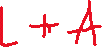 L + A